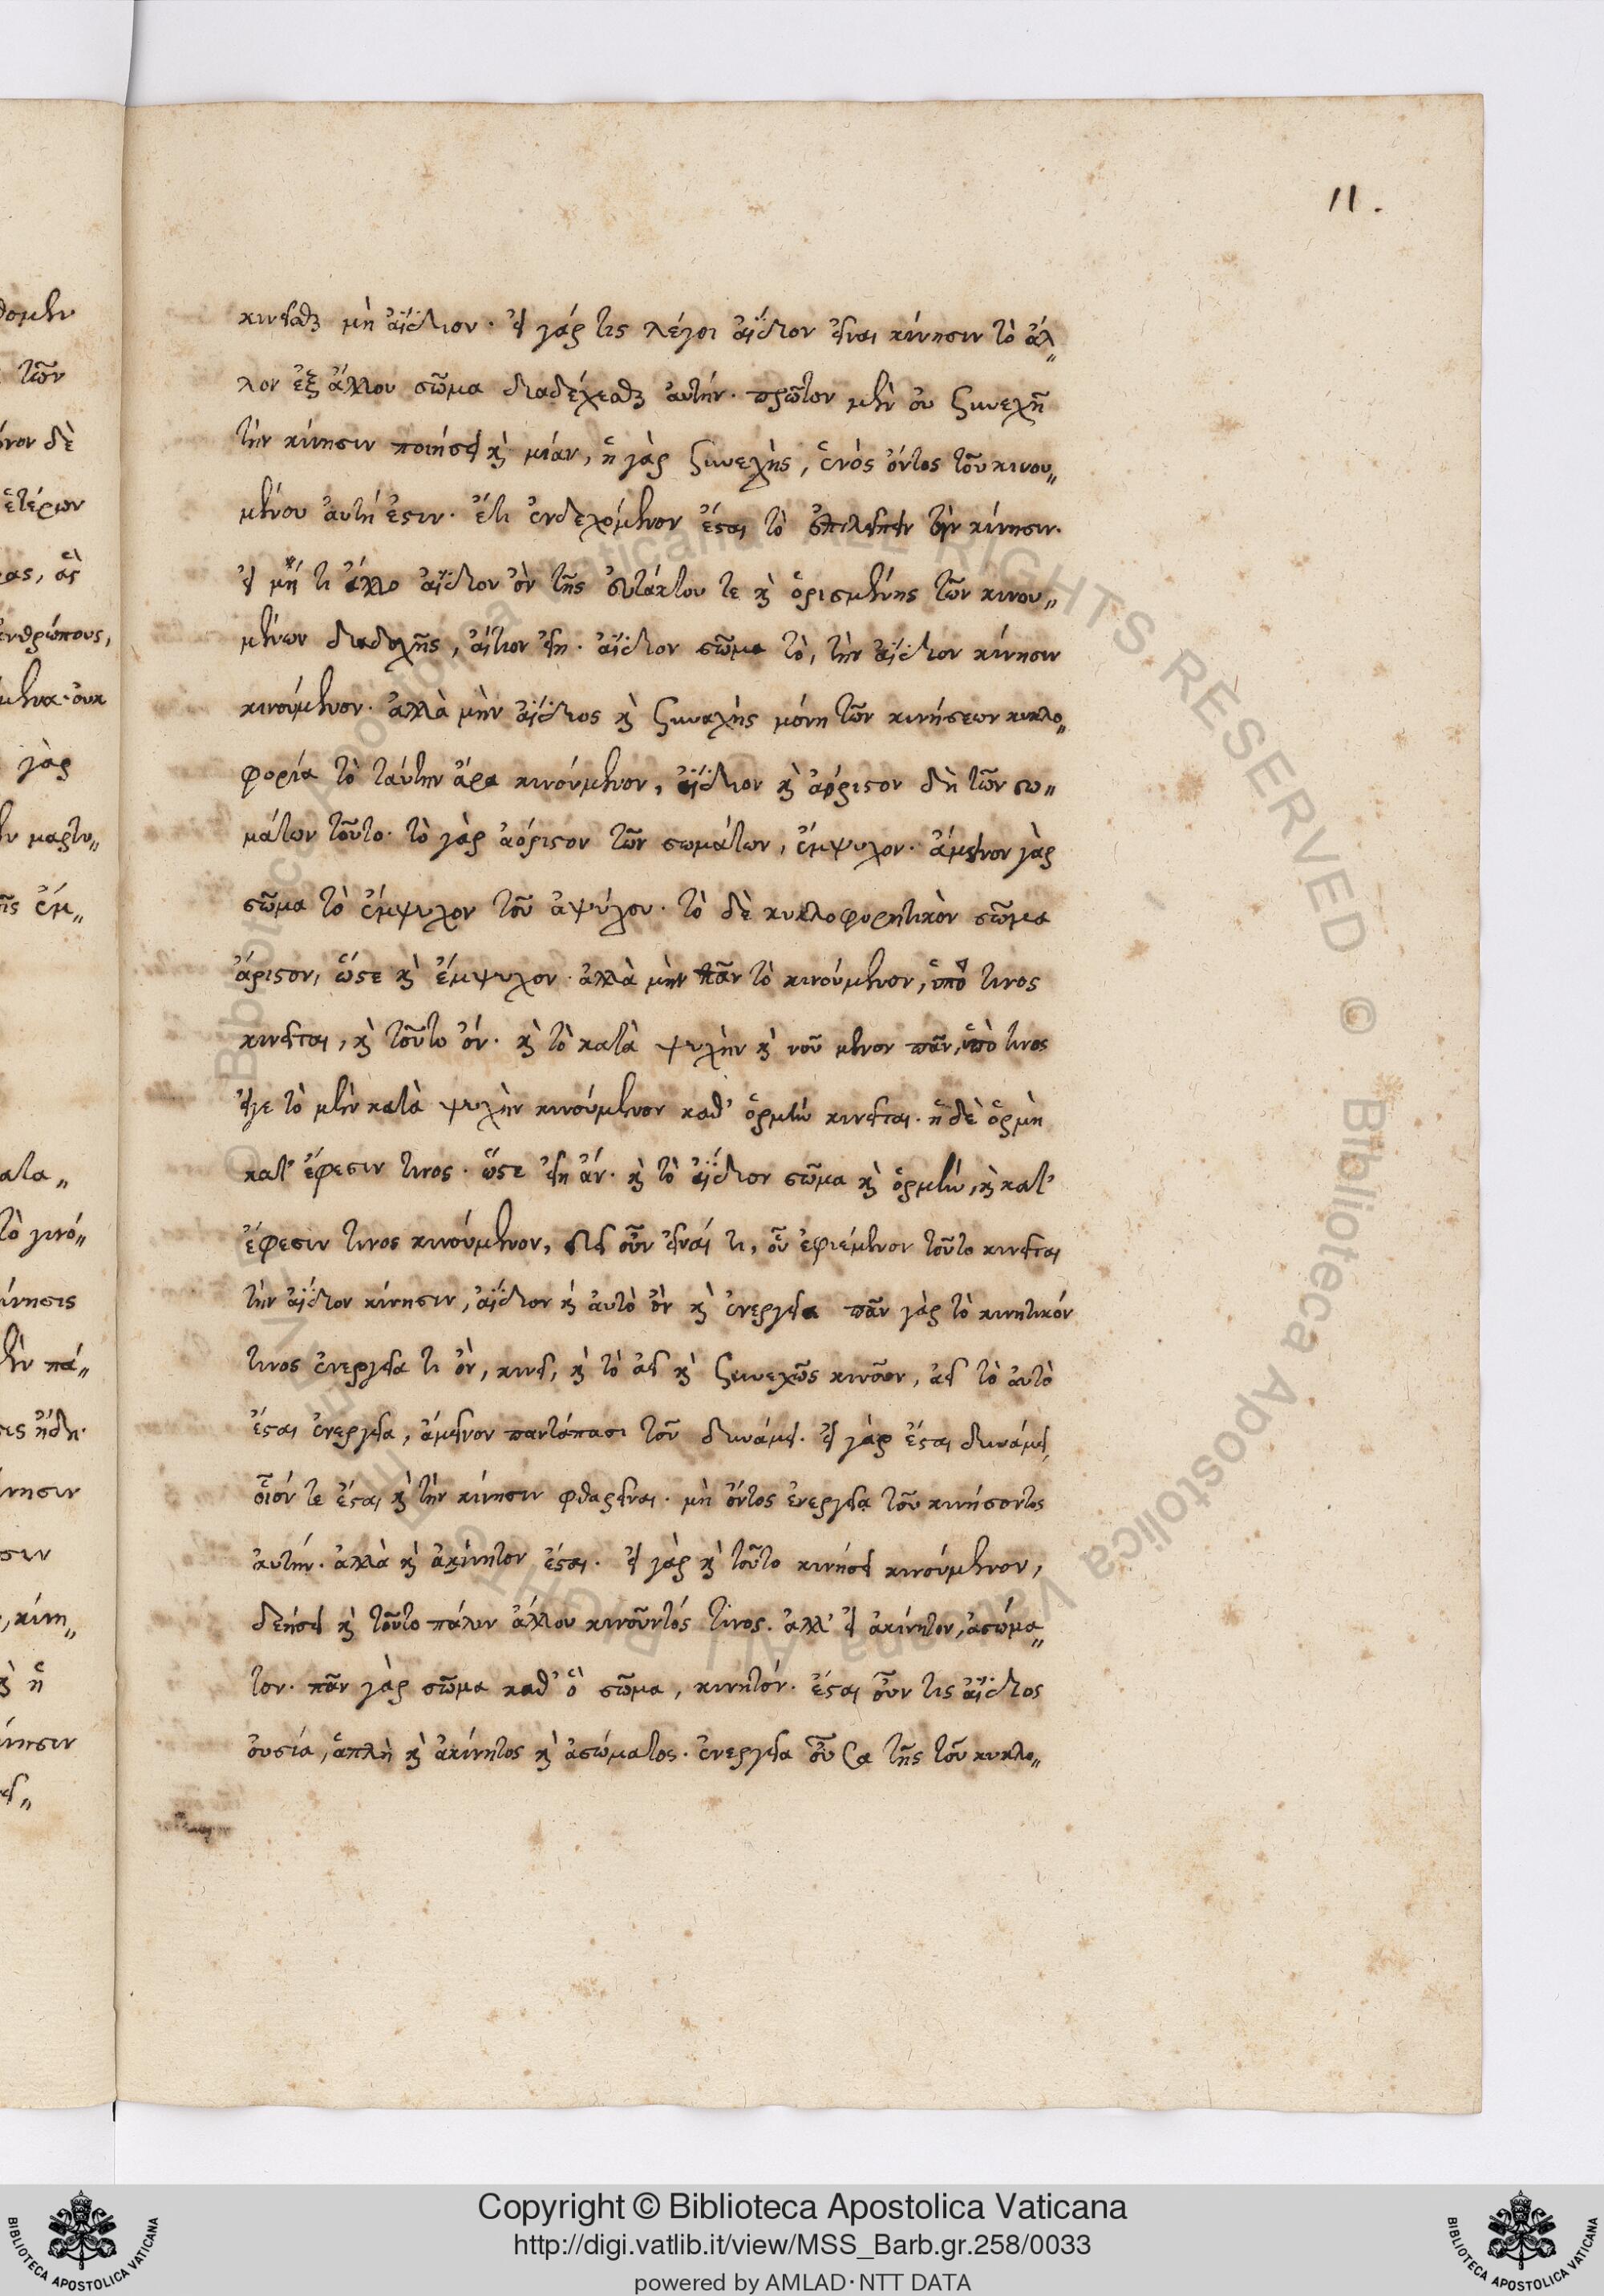 11.
κινεῖσθαι μὴ ἀΐδιον· εἰ γάρ τις λέγοι ἀΐδιον εἶναι κίνησιν τὸ ἄλ„
λον ἐξ ἄλλου σῶμα διαδέχεσθαι αὐτήν· πρῶτον μὲν οὐ ξυνεχῆ
τὴν κίνησιν ποιήσει καὶ μίαν, ἡ γὰρ ξυνεχὴς, ἑνὸς ὄντος τοῦ κινου„
μένου αὐτή ἐστιν· ἔτι ἐνδεχόμενον ἔσται τὸ ἐπιλείπειν τὴν κίνησιν·
εἰ μή τι ἄλλο ἀΐδιον ὂν τῆς εὐτάκτου τε καὶ ὁρισμένης τῶν κινου„
μένων διαδοχῆς, αἴτιον εἴη· ἀΐδιον σῶμα τὸ, τὴν ἀΐδιον κίνησιν
κινούμενον· ἀλλὰ μὴν ἀΐδιος καὶ ξυνεχὴς μόνη τῶν κινήσεων κυκλο„
φορία τὸ ταύτην ἄρα κινούμενον, ἀΐδιον καὶ ἀόριστον δὴ τῶν σω„
μάτων τοῦτο· τὸ γὰρ ἀόριστον τῶν σωμάτων, ἔμψυχον· ἄμεινον γὰρ
σῶμα τὸ ἔμψυχον τοῦ ἀψύχου· τὸ δὲ κυκλοφορητικὸν σῶμα
ἄριστον, ὥστε καὶ ἔμψυχον· ἀλλὰ μὴν πᾶν τὸ κινούμενον, ὑπό τινος
κινεῖται, καὶ τοῦτο ὄν· καὶ τὸ κατὰ ψυχὴν καὶ νοῦ μενον πᾶν, ὑπό τινος
εἴγε τὸ μὲν κατὰ ψυχὴν κινούμενον καθ' ὁρμὴν κινεῖται· ἡ δὲ ὁρμὴ
κατ' ἔφεσιν τινος· ὥστε εἴη ἄν· καὶ τὸ ἀΐδιον σῶμα καὶ ὁρμὴν, καὶ κατ'
ἔφεσιν τινος κινούμενον, δεῖ οὖν εἶναί τι, οὗ ἐφιέμενον τοῦτο κινεῖται
τὴν ἀΐδιον κίνησιν, ἀΐδιον καὶ αὐτὸ ὂν καὶ ἐνεργεία πᾶν γὰρ τὸ κινητικόν
τινος ἐνεργεία τι ὂν, κινεῖ, καὶ τὸ ἀεὶ καὶ ξυνεχῶς κινοῦν, ἀεὶ τὸ αὐτὸ
ἔσται ἐνεργεία, ἄμεινον παντάπασι τοῦ δυνάμει· εἰ γὰρ ἔσται δυνάμει,
οἷόν τε ἔσται καὶ τὴν κίνησιν φθαρεῖναι· μὴ ὄντος ἐνεργεία τοῦ κινήσοντος
αὐτήν· ἀλλὰ καὶ ἀκίνητον ἔσται· εἰ γὰρ καὶ τοῦτο κινήσει κινούμενον,
δεήσει καὶ τοῦτο πάλιν ἄλλου κινοῦντός τινος· ἀλλ' εἰ ἀκίνητον, ἀσώμα„
τον· πᾶν γὰρ σῶμα καθ' ὃ σῶμα, κινητόν· ἔσται οὖν τις ἀΐδιος
οὐσία, ἁπλὴ καὶ ἀκίνητος καὶ ἀσώματος· ἐνεργεία οὖσα τῆς τοῦ κυκλο„
© Biblioteca Apostolica Vaticana ALL RIGHTS RESERVED © Biblioteca Apostolica Vaticana ALL RIGHTS RESERVED
Copyright © Biblioteca Apostolica Vaticana
http://digi.vatlib.it/view/MSS_Barb.gr.258/0033
powered by AMLAD·NTT DATA
BIBLIOTECA APOSTOLICA VATICANA
BIBLIOTECA APOSTOLICA VATICANA